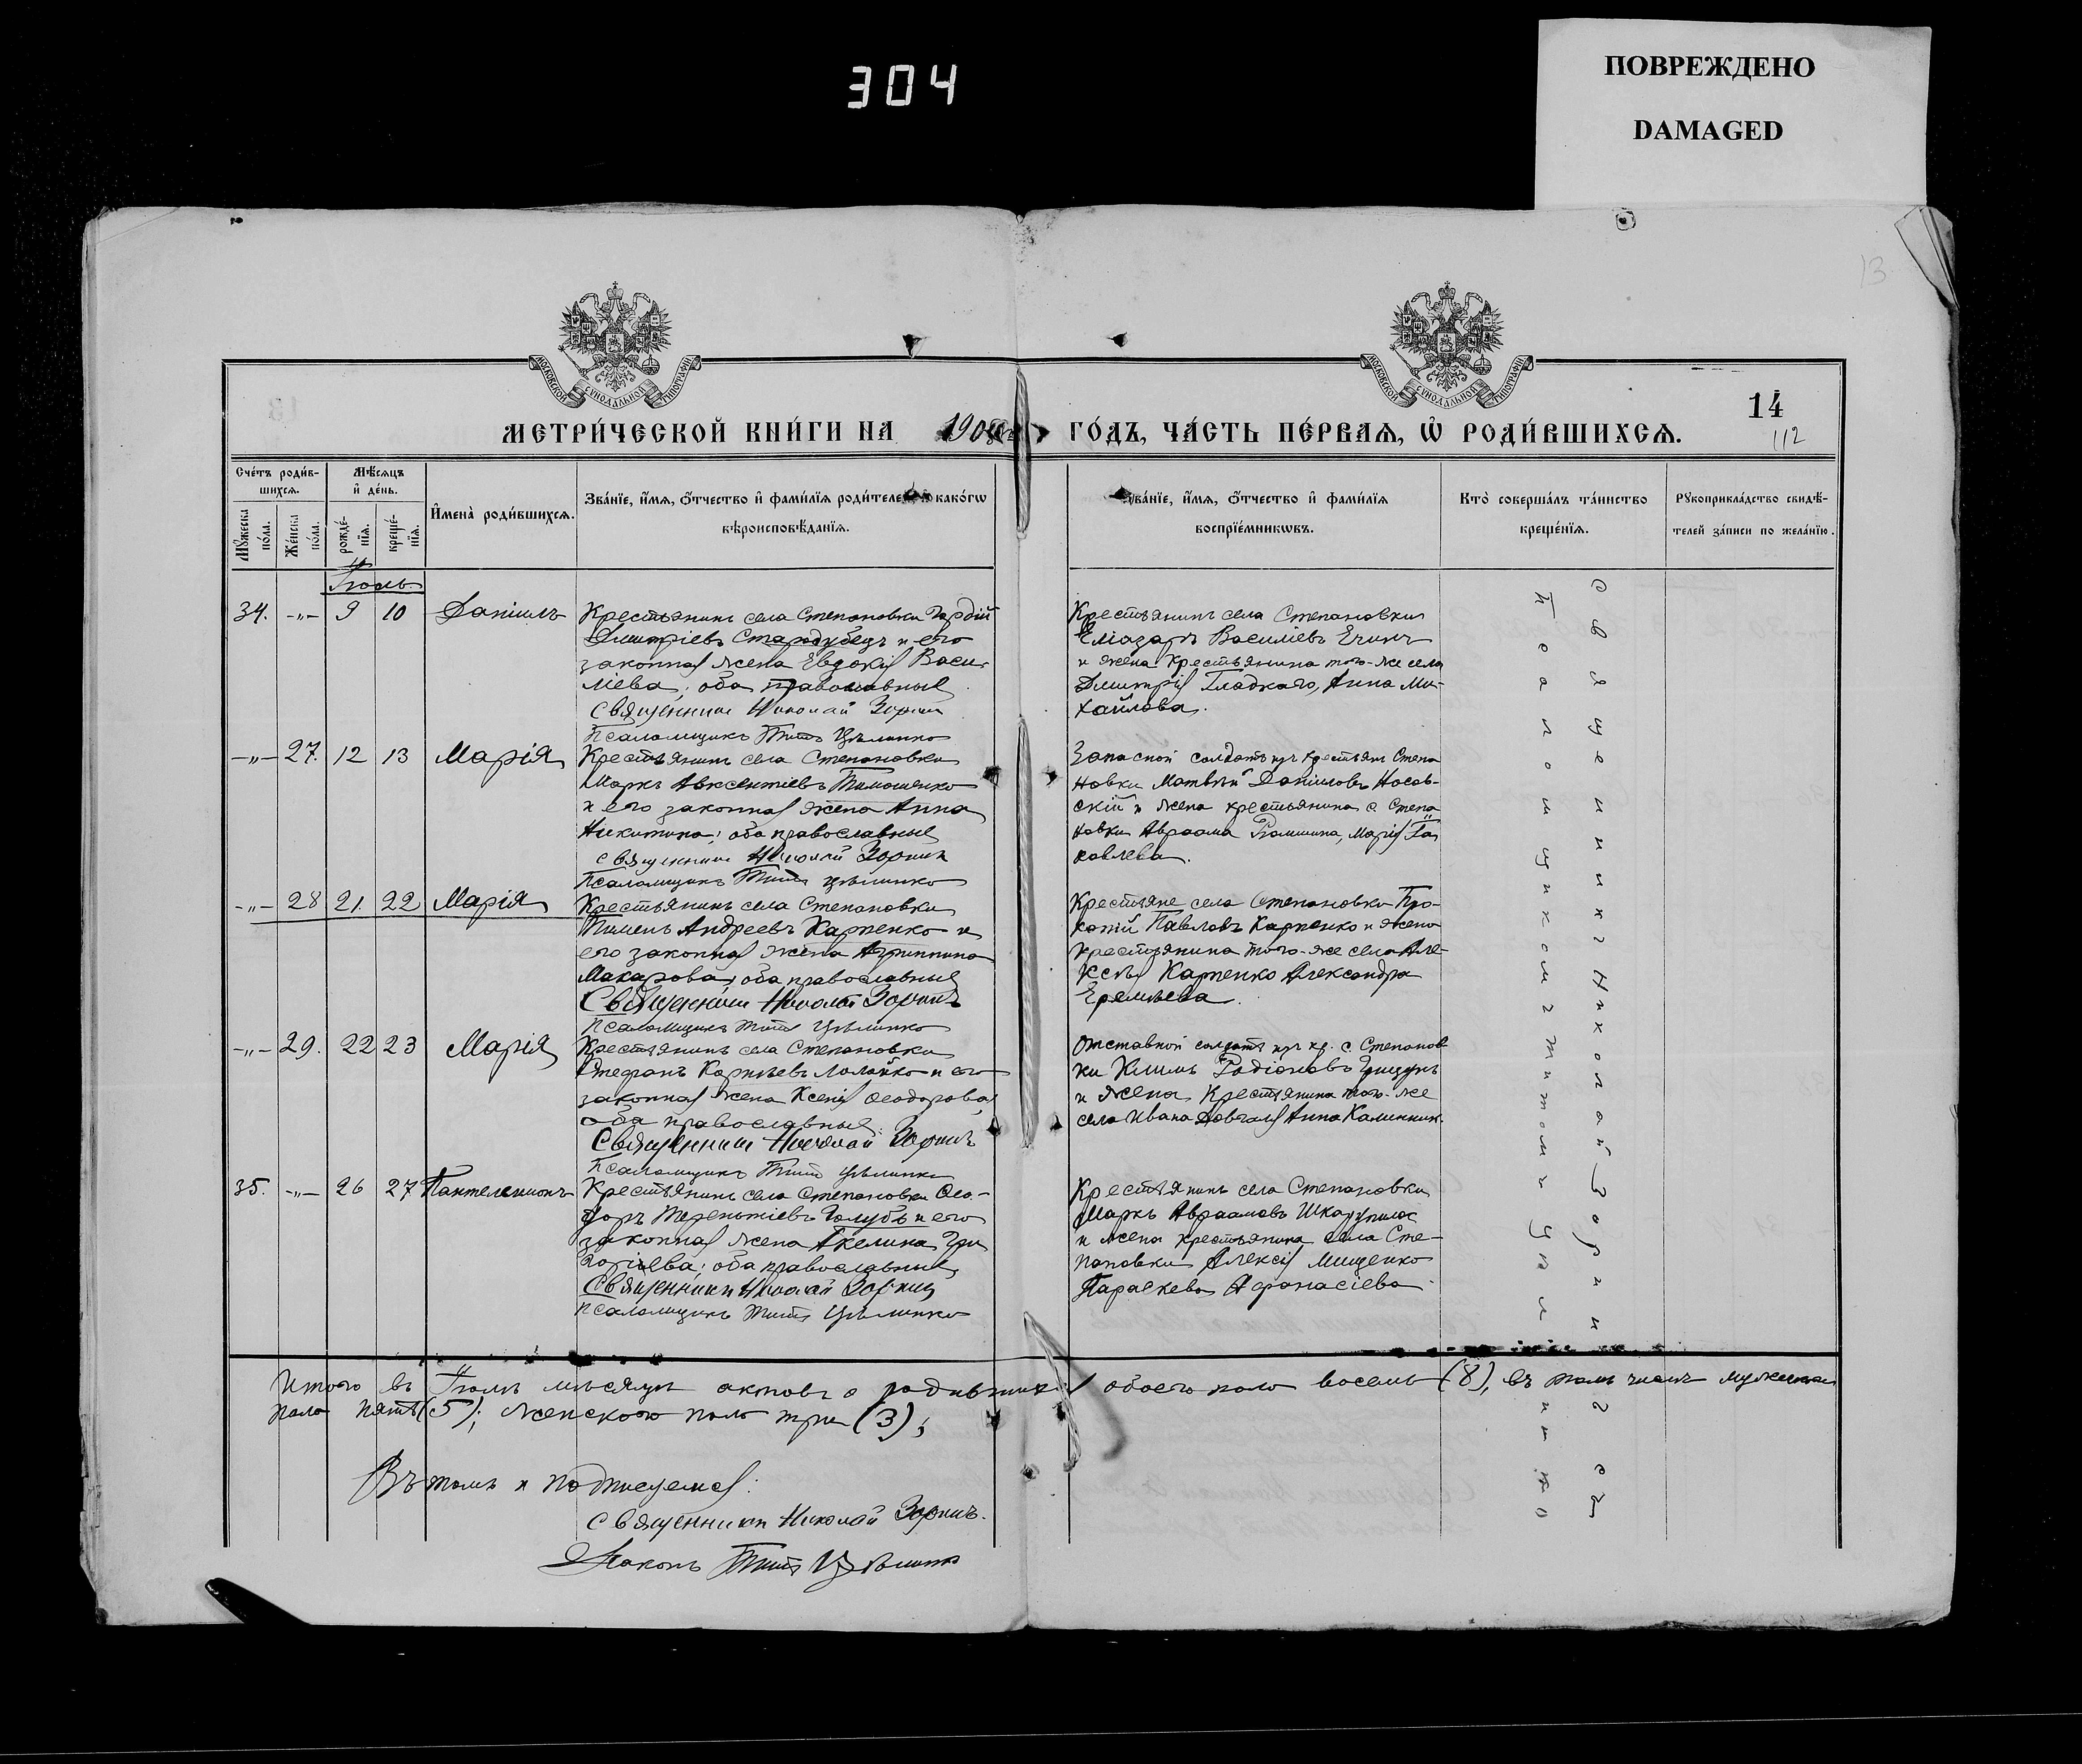 304
ПОВРЕЖДЕНО
DAMAGED
13
МОСКОВСКОЙ СѴНОДАЛЬНОЙ ТИПОГРАФІИ
МОСКОВСКОЙ СѴНОДАЛЬНОЙ ТИПОГРАФІИ
МЕТРИ́ЧЕСКОЙ КНИ́ГИ НА 1908 ГО́ДЪ, ЧА́СТЬ ПЕ́РВАѦ, Ѡ҆ РОДИ́ВШИХСѦ.
14
112
Сче́тъ роди́в-
шихсѧ.
Мѣ́сѧцъ
и҆ де́нь.
Мꙋ́жеска
по́ла.
Же́нска
по́ла.
рожде́-
нїѧ.
креще́-
нїѧ.
И҆мена̀ роди́вшихсѧ.
Зва́нїе, и҆́мѧ, ѻ҆́тчество и҆ фами́лїѧ роди́телей и҆ како́гѡ
вѣроисповѣ́данїѧ.
Зва́нїе, и҆́мѧ, ѻ҆́тчество и҆ фами́лїѧ
воспрїе́мникѡвъ.
Кто̀ соверша́лъ та́инство
креще́нїѧ.
Рꙋкоприкла́дство свидѣ́-
телей за́писи по жела́нїю.
Іюль
34. -„- 9 10 Даніилъ
Крестьянинъ села Степановки Гордій
Димитріевъ Стародубецъ и его
законная жена Евдокія Васи-
ліева, оба православные
Священникъ Николай Зоринъ
Псаломщикъ Титъ Цѣлинко
Крестьянинъ села Степановки
Еліазаръ Василіевъ Ечинъ
и жена крестьянина того-же села
Димитрія Гладкаго, Анна Ми-
хайлова.
-„- 27. 12 13 Марія
Крестьянинъ села Степановки
Маркъ Авксентіевъ Тимошенко
и его законная жена Анна
Никитина; оба православные
Священникъ Николай Зоринъ
Псаломщикъ Титъ Цѣлинко
Запасной солдатъ изъ крестьянъ Степа
новки Матвѣй Даніиловъ Носов-
скій и жена крестьянина с. Степа
новки Авраама Марія Іа
ковлева.
-„- 28 21. 22 Марія
Крестьянинъ села Степановки
Пименъ Андреевъ Карпенко и
его законная жена Агриппина
Макарова, оба православные
Священникъ Николай Зоринъ
Псаломщикъ Титъ Цѣлинко
Крестьяне села Степановки Про-
копій Павловъ Карпенко и жена
крестьянина того-же села Але-
ксѣя Карпенко Александра
Еремѣева.
-„- 29. 22 23 Марія
Крестьянинъ села Степановки
Стефанъ Корнѣевъ Лолайко и его
законная жена Ксенія Ѳеодорова,
оба православные.
Священникъ Николай Зоринъ
Псаломщикъ Титъ Цѣлинко
Отставной солдатъ изъ кр. с. Степанов-
ки Климъ Родіоновъ Грицунъ
и жена крестьянина того-же
села Ивана Довгаля Анна Калинник.
35. -„- 26 27 Пантелеимонъ
Крестьянинъ села Степановки Ѳео-
доръ Терентіевъ Голубъ и его
законная жена Акелина Гри
горіева; оба православные
Священникъ Николай Зоринъ
Псаломщикъ Титъ Цѣлинко
Крестьянинъ села Степановки
Маркъ Авраамовъ Шкарупило
и жена крестьянина села Сте-
пановки Алексія Мищенко
Параскева Афанасіева.
Священникъ Николай Зоринъ съ
Псаломщикомъ Титомъ Цѣлинко
Итого въ Іюлѣ мѣсяцѣ актовъ о родившихся обоего пола восемь (8), въ томъ числѣ мужескаго
пола пять (5); женского пола три (3);
Въ томъ и подписуемся:
Священникъ Николай Зоринъ.
Діаконъ Титъ Цѣлинко